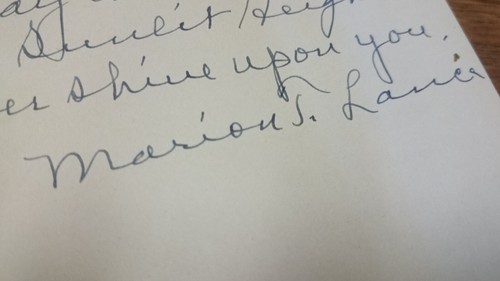 Sunlit Heigh
er shine upon you.
Marion S. Lanier